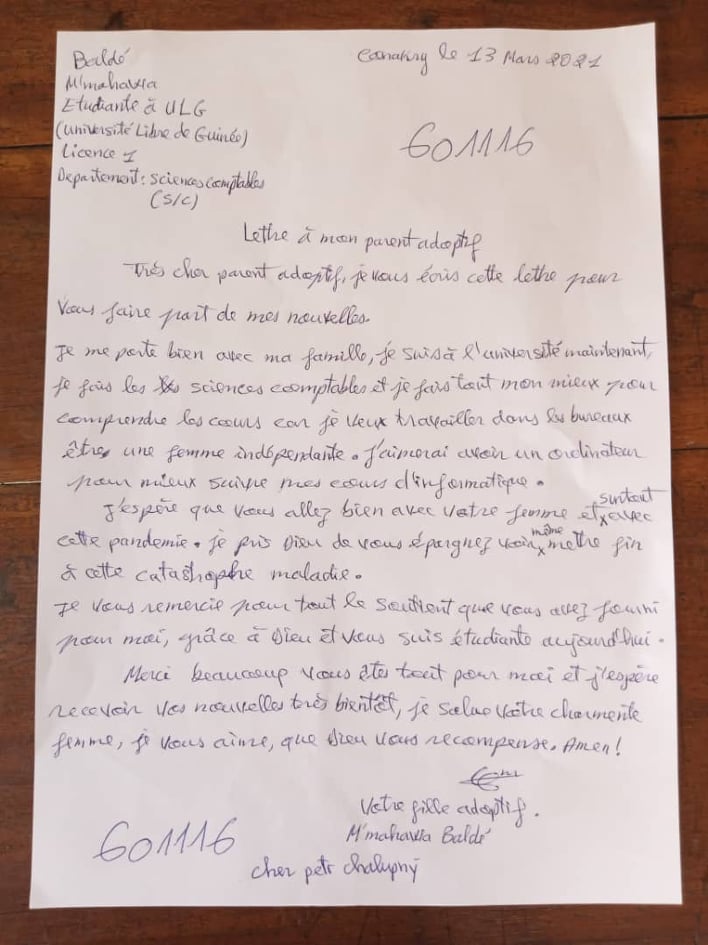 Baldé
M'mahawa
Etudiante à ULG
(Université Libre de Guinée)
Licence 1
Departement: Sciences comptables
(S/C)
Conakry le 13 Mars 2021
601116
Lettre à mon parent adoptif
Très cher parent adoptif, je vous écris cette lettre pour
vous faire part de mes nouvelles.
Je me porte bien avec ma famille, je suis à l'université maintenant,
je fais les sciences comptables et je fais tout mon mieux pour
comprendre les cours car je veux travailler dans les bureaux
être une femme indépendante. J'aimerai avoir un ordinateur
pour mieux suivre mes cours d'informatique.
J'espère que vous allez bien avec votre femme et surtout avec
cette pandemie. je pris Dieu de vous épargnez voir même mettre fin
à cette catastrophe maladie.
Je vous remercie pour tout le soutient que vous avez fourni
pour moi, grâce à Dieu et vous suis étudiante aujourd'hui.
Merci beaucoup vous êtes tout pour moi et j'espère
recevoir vos nouvelles très bientôt, je salue votre charmente
femme, je vous aime, que Dieu vous recompense. Amen!
Votre fille adoptif.
M'mahawa Baldé
601116
cher petr chalupný